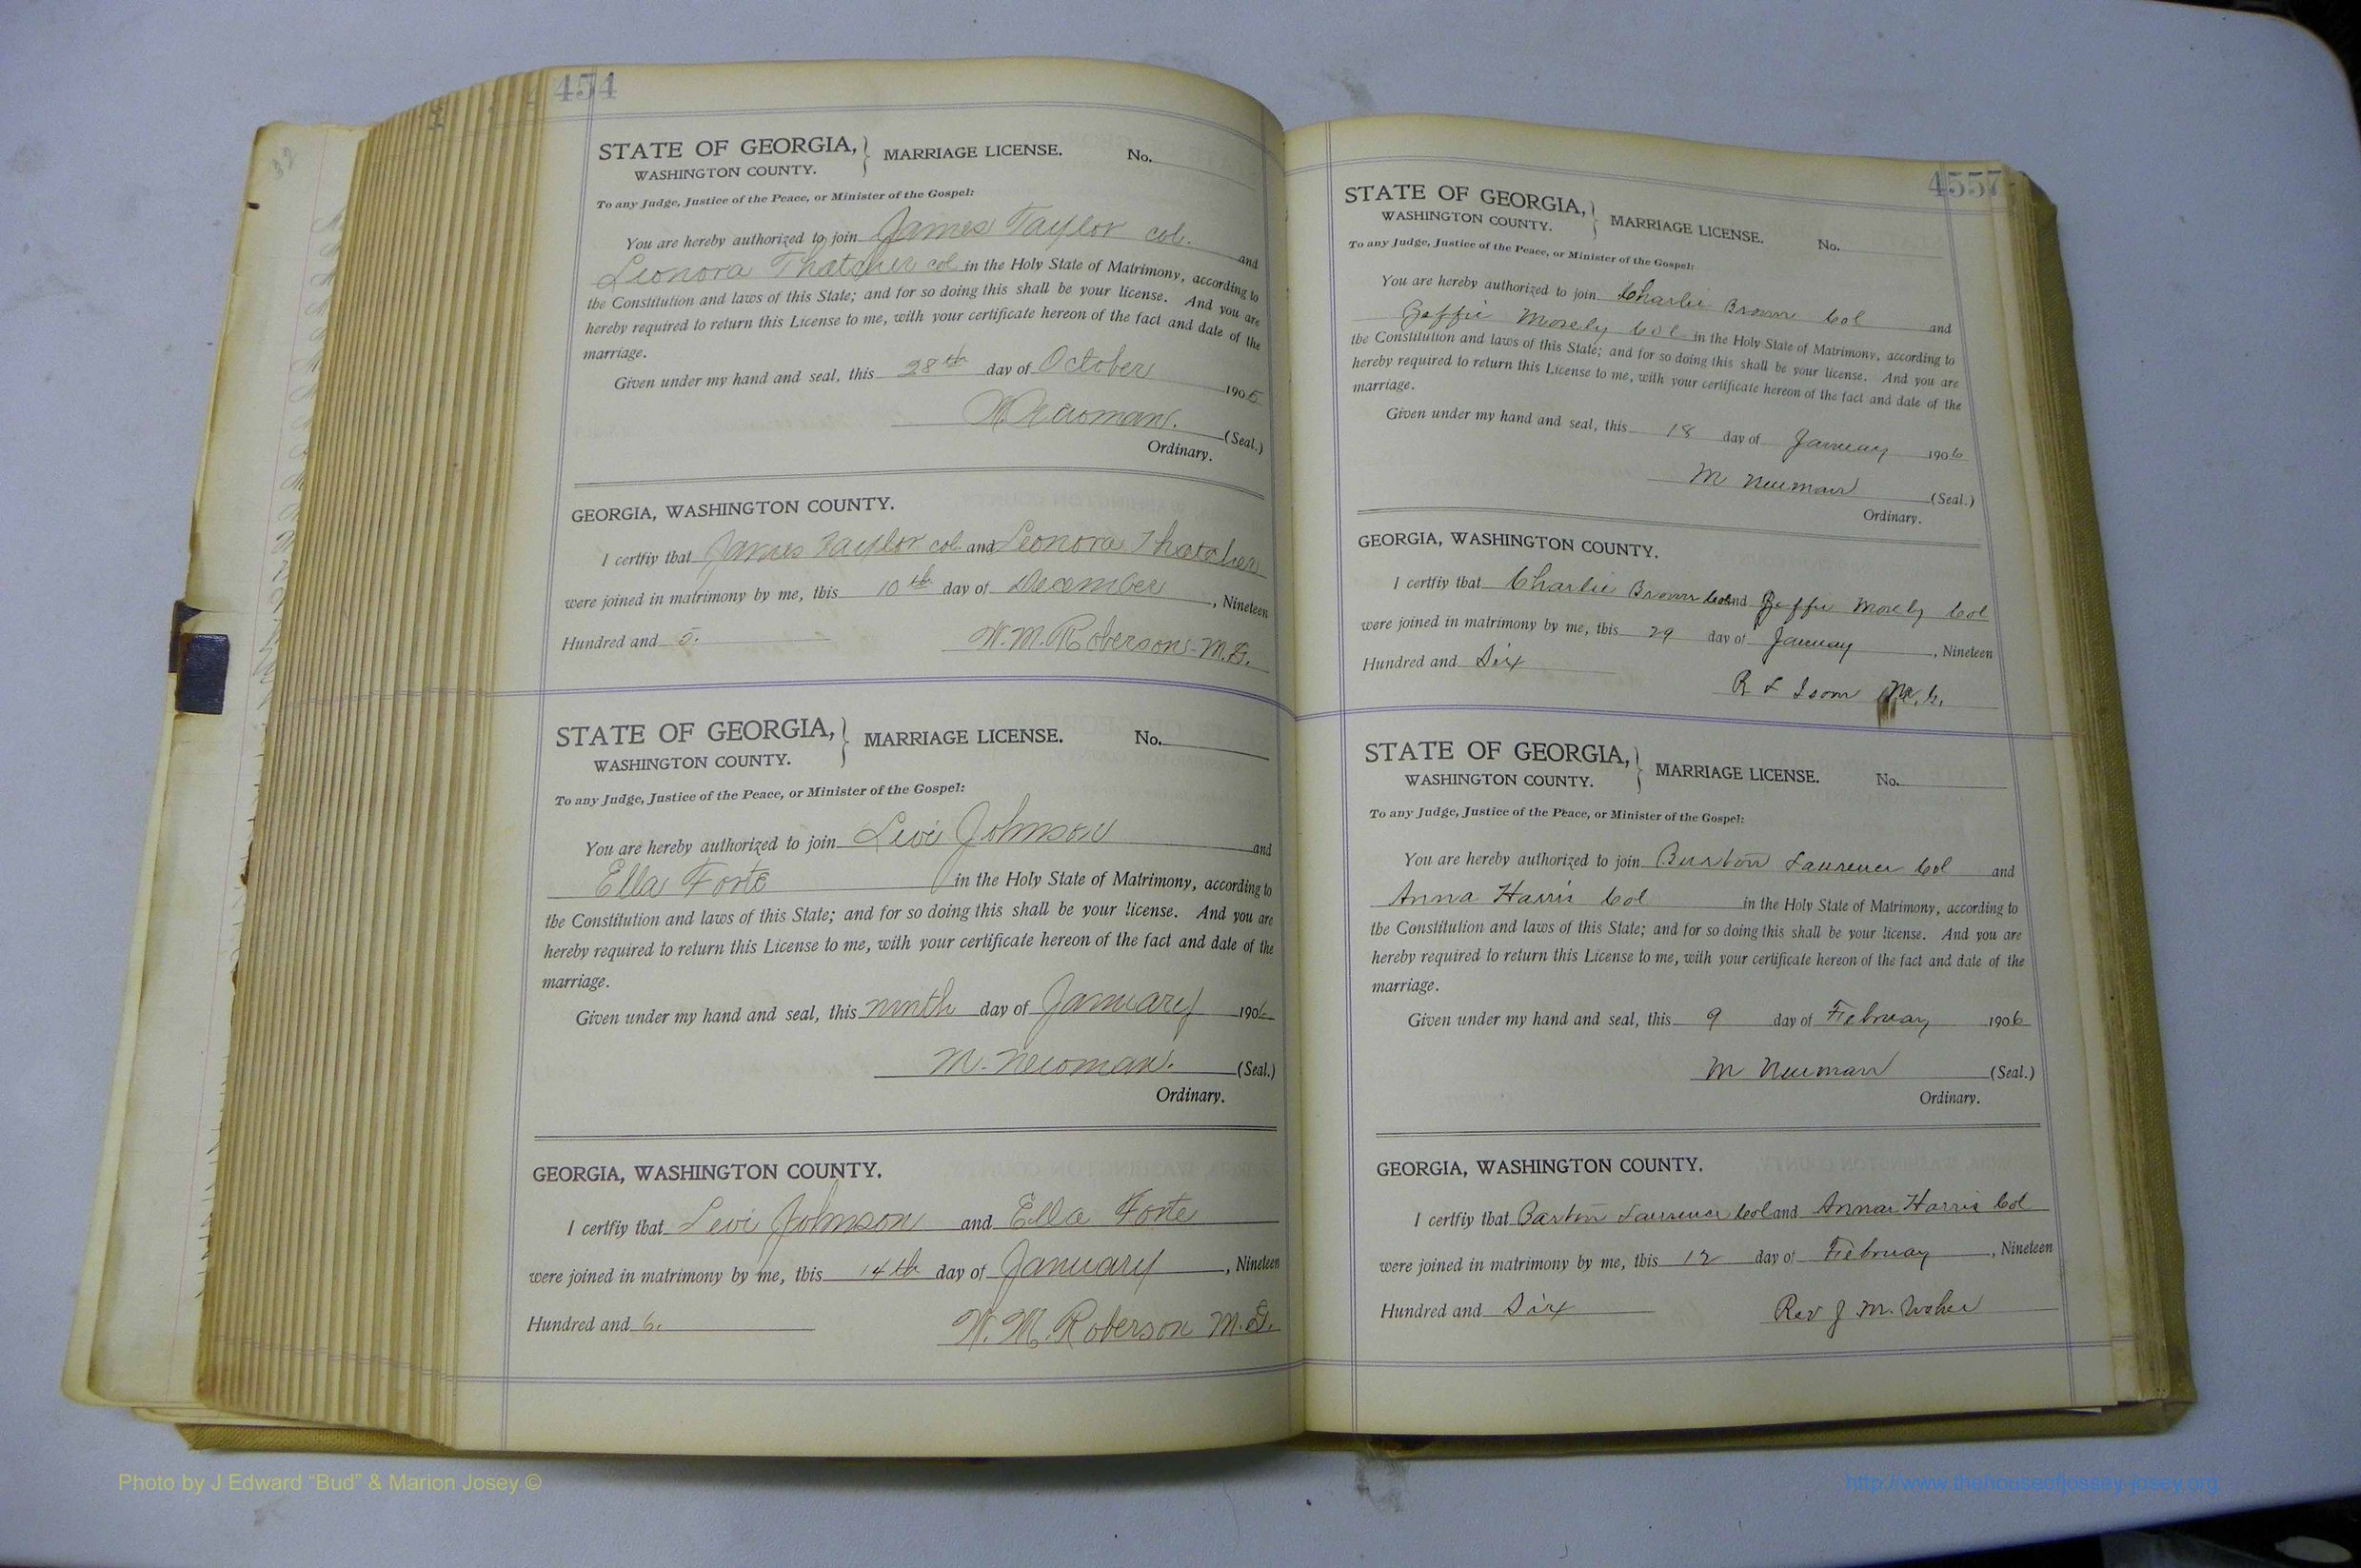 454
STATE OF GEORGIA, } MARRIAGE LICENSE. No.
WASHINGTON COUNTY.
To any Judge, Justice of the Peace, or Minister of the Gospel:
You are hereby authorized to join James Taylor col. and
Leonora Thatcher col in the Holy State of Matrimony, according to
the Constitution and laws of this State; and for so doing this shall be your license. And you are
hereby required to return this License to me, with your certificate hereon of the fact and date of the
marriage.
Given under my hand and seal, this 28th day of October 1905
M. Newman. (Seal.)
Ordinary.
GEORGIA, WASHINGTON COUNTY.
I certfiy that James Taylor col. and Leonora Thatcher
were joined in matrimony by me, this 10th day of December, Nineteen
Hundred and 5. W. M. Roberson M.G.
STATE OF GEORGIA, } MARRIAGE LICENSE. No.
WASHINGTON COUNTY.
To any Judge, Justice of the Peace, or Minister of the Gospel:
You are hereby authorized to join Levi Johnson and
Ella Forte in the Holy State of Matrimony, according to
the Constitution and laws of this State; and for so doing this shall be your license. And you are
hereby required to return this License to me, with your certificate hereon of the fact and date of the
marriage.
Given under my hand and seal, this ninth day of January 1906
M. Newman. (Seal.)
Ordinary.
GEORGIA, WASHINGTON COUNTY.
I certfiy that Levi Johnson and Ella Forte
were joined in matrimony by me, this 14th day of January, Nineteen
Hundred and 6. W. M. Roberson M.G.
4557
STATE OF GEORGIA, } MARRIAGE LICENSE. No.
WASHINGTON COUNTY.
To any Judge, Justice of the Peace, or Minister of the Gospel:
You are hereby authorized to join Charlie Brown Col and
Mosely Col in the Holy State of Matrimony, according to
the Constitution and laws of this State; and for so doing this shall be your license. And you are
hereby required to return this License to me, with your certificate hereon of the fact and date of the
marriage.
Given under my hand and seal, this 18 day of January 1906
M Newman (Seal.)
Ordinary.
GEORGIA, WASHINGTON COUNTY.
I certfiy that Charlie Brown Col and Mosely Col
were joined in matrimony by me, this 29 day of January, Nineteen
Hundred and Six
R L Isom M.G.
STATE OF GEORGIA, } MARRIAGE LICENSE. No.
WASHINGTON COUNTY.
To any Judge, Justice of the Peace, or Minister of the Gospel:
You are hereby authorized to join Burton Laurence Col and
Anna Harris Col in the Holy State of Matrimony, according to
the Constitution and laws of this State; and for so doing this shall be your license. And you are
hereby required to return this License to me, with your certificate hereon of the fact and date of the
marriage.
Given under my hand and seal, this 9 day of February 1906
M Newman (Seal.)
Ordinary.
GEORGIA, WASHINGTON COUNTY.
I certfiy that Laurence Col and Anna Harris Col
were joined in matrimony by me, this 12 day of February, Nineteen
Hundred and Six Rev J. M.
Photo by J Edward “Bud” & Marion Josey ©
http://www.thehouseofjossey-josey.org